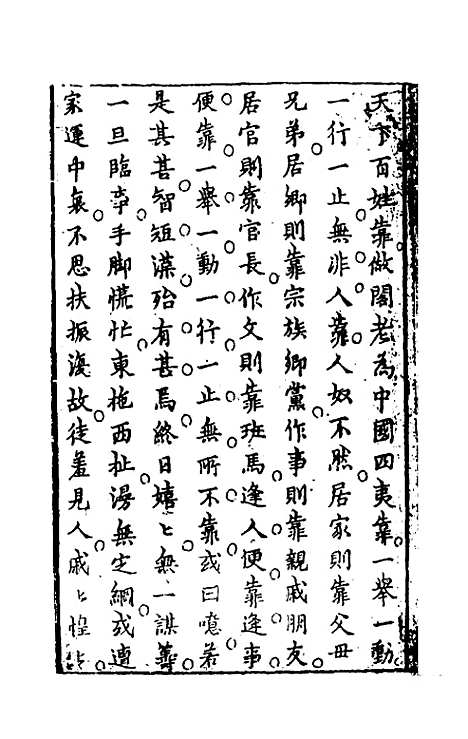 天下百姓靠做閣老為中國四夷靠一舉一動
一行一止無非人靠人奴不然居家則靠父母
兄弟居鄉則靠宗族鄉黨作事則靠親戚朋友
居官則靠官長作文則靠班馬逢人便靠逢事
便靠一舉一動一行一止無所不靠或曰噫若
是其甚智短謀殆有甚焉終日嬉〻無一謀籌
一旦臨事手脚慌忙東拖西扯漫無定綱或遭
家運中衰不思扶振復故徒羞見人戚〻惶〻